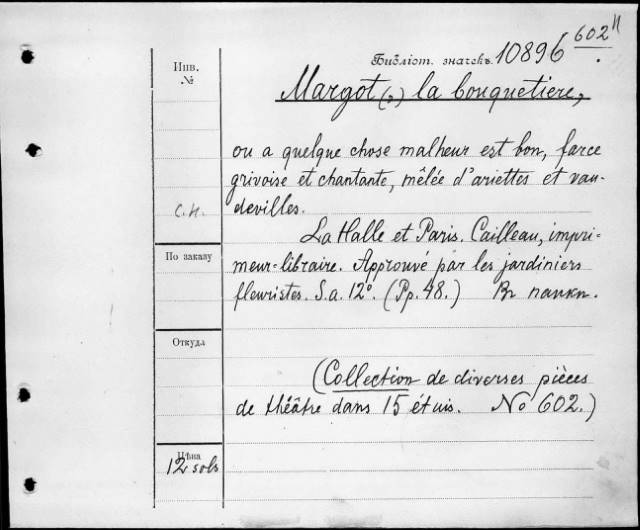 602
Библіот. значекъ 10896
Инв.
№
Margot (,) la bouquetiere,
ou a quelque chose malheur est bon, farce
grivoise et chantante, mêlée d'ariettes et vau-
devilles.
La Halle et Paris. Cailleau, impri-
meur-libraire. Approuvé par les jardiniers
По заказу
fleuristes. S.a. 12°. (Pp. 48.) Въ папкѣ.
Откуда
(Collection de diverses pièces
de théâtre dans 15 étuis. No 602.)
Цѣна
12 sols